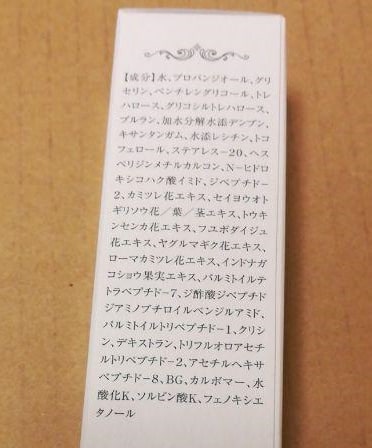 【成分】水、プロパンジオール、グリ
セリン、ペンチレングリコール、トレ
ハロース、グリコシルトレハロース、
プルラン、加水分解水添デンプン、
キサンタンガム、水添レシチン、トコ
フェロール、ステアレス-20、ヘス
ペリジンメチルカルコン、N-ヒドロ
キシコハク酸イミド、ジペプチド-
2、カミツレ花エキス、セイヨウオト
ギリソウ花／葉／茎エキス、トウキ
ンセンカ花エキス、フユボダイジュ
花エキス、ヤグルマギク花エキス、
ローマカミツレ花エキス、インドナガ
コショウ果実エキス、パルミトイルテ
トラペプチド-7、ジ酢酸ジペプチド
ジアミノブチロイルベンジルアミド、
パルミトイルトリペプチド-1、クリシ
ン、デキストラン、トリフルオロアセチ
ルトリペプチド-2、アセチルヘキサ
ペプチド-8、BG、カルボマー、水
酸化K、ソルビン酸K、フェノキシエ
タノール